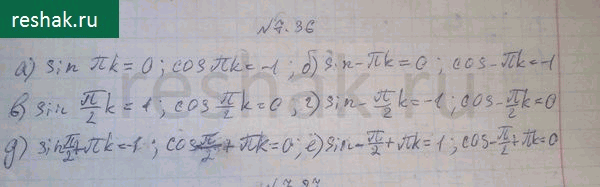 reshak.ru
№7.36
а) sin πk = 0 ; cos πk = -1 ; б) sin -πk = 0 ; cos -πk = -1
в) sin π/2 k = 1 ; cos π/2 k = 0 ; г) sin -π/2 k = -1 ; cos -π/2 k = 0
д) sin π/2 + πk = 1 ; cos π/2 + πk = 0 ; е) sin -π/2 + πk = 1 ; cos -π/2 + πk = 0